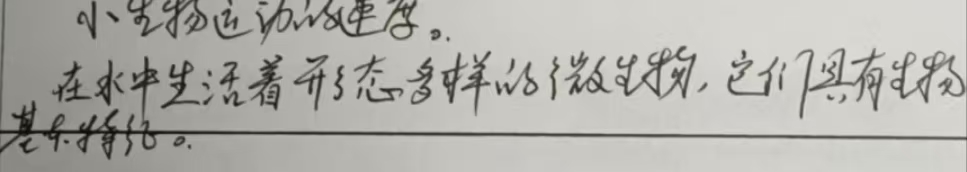 小生物运动的速度。
在水中生活着形态多样的微生物，它们具有生物
基本特征。